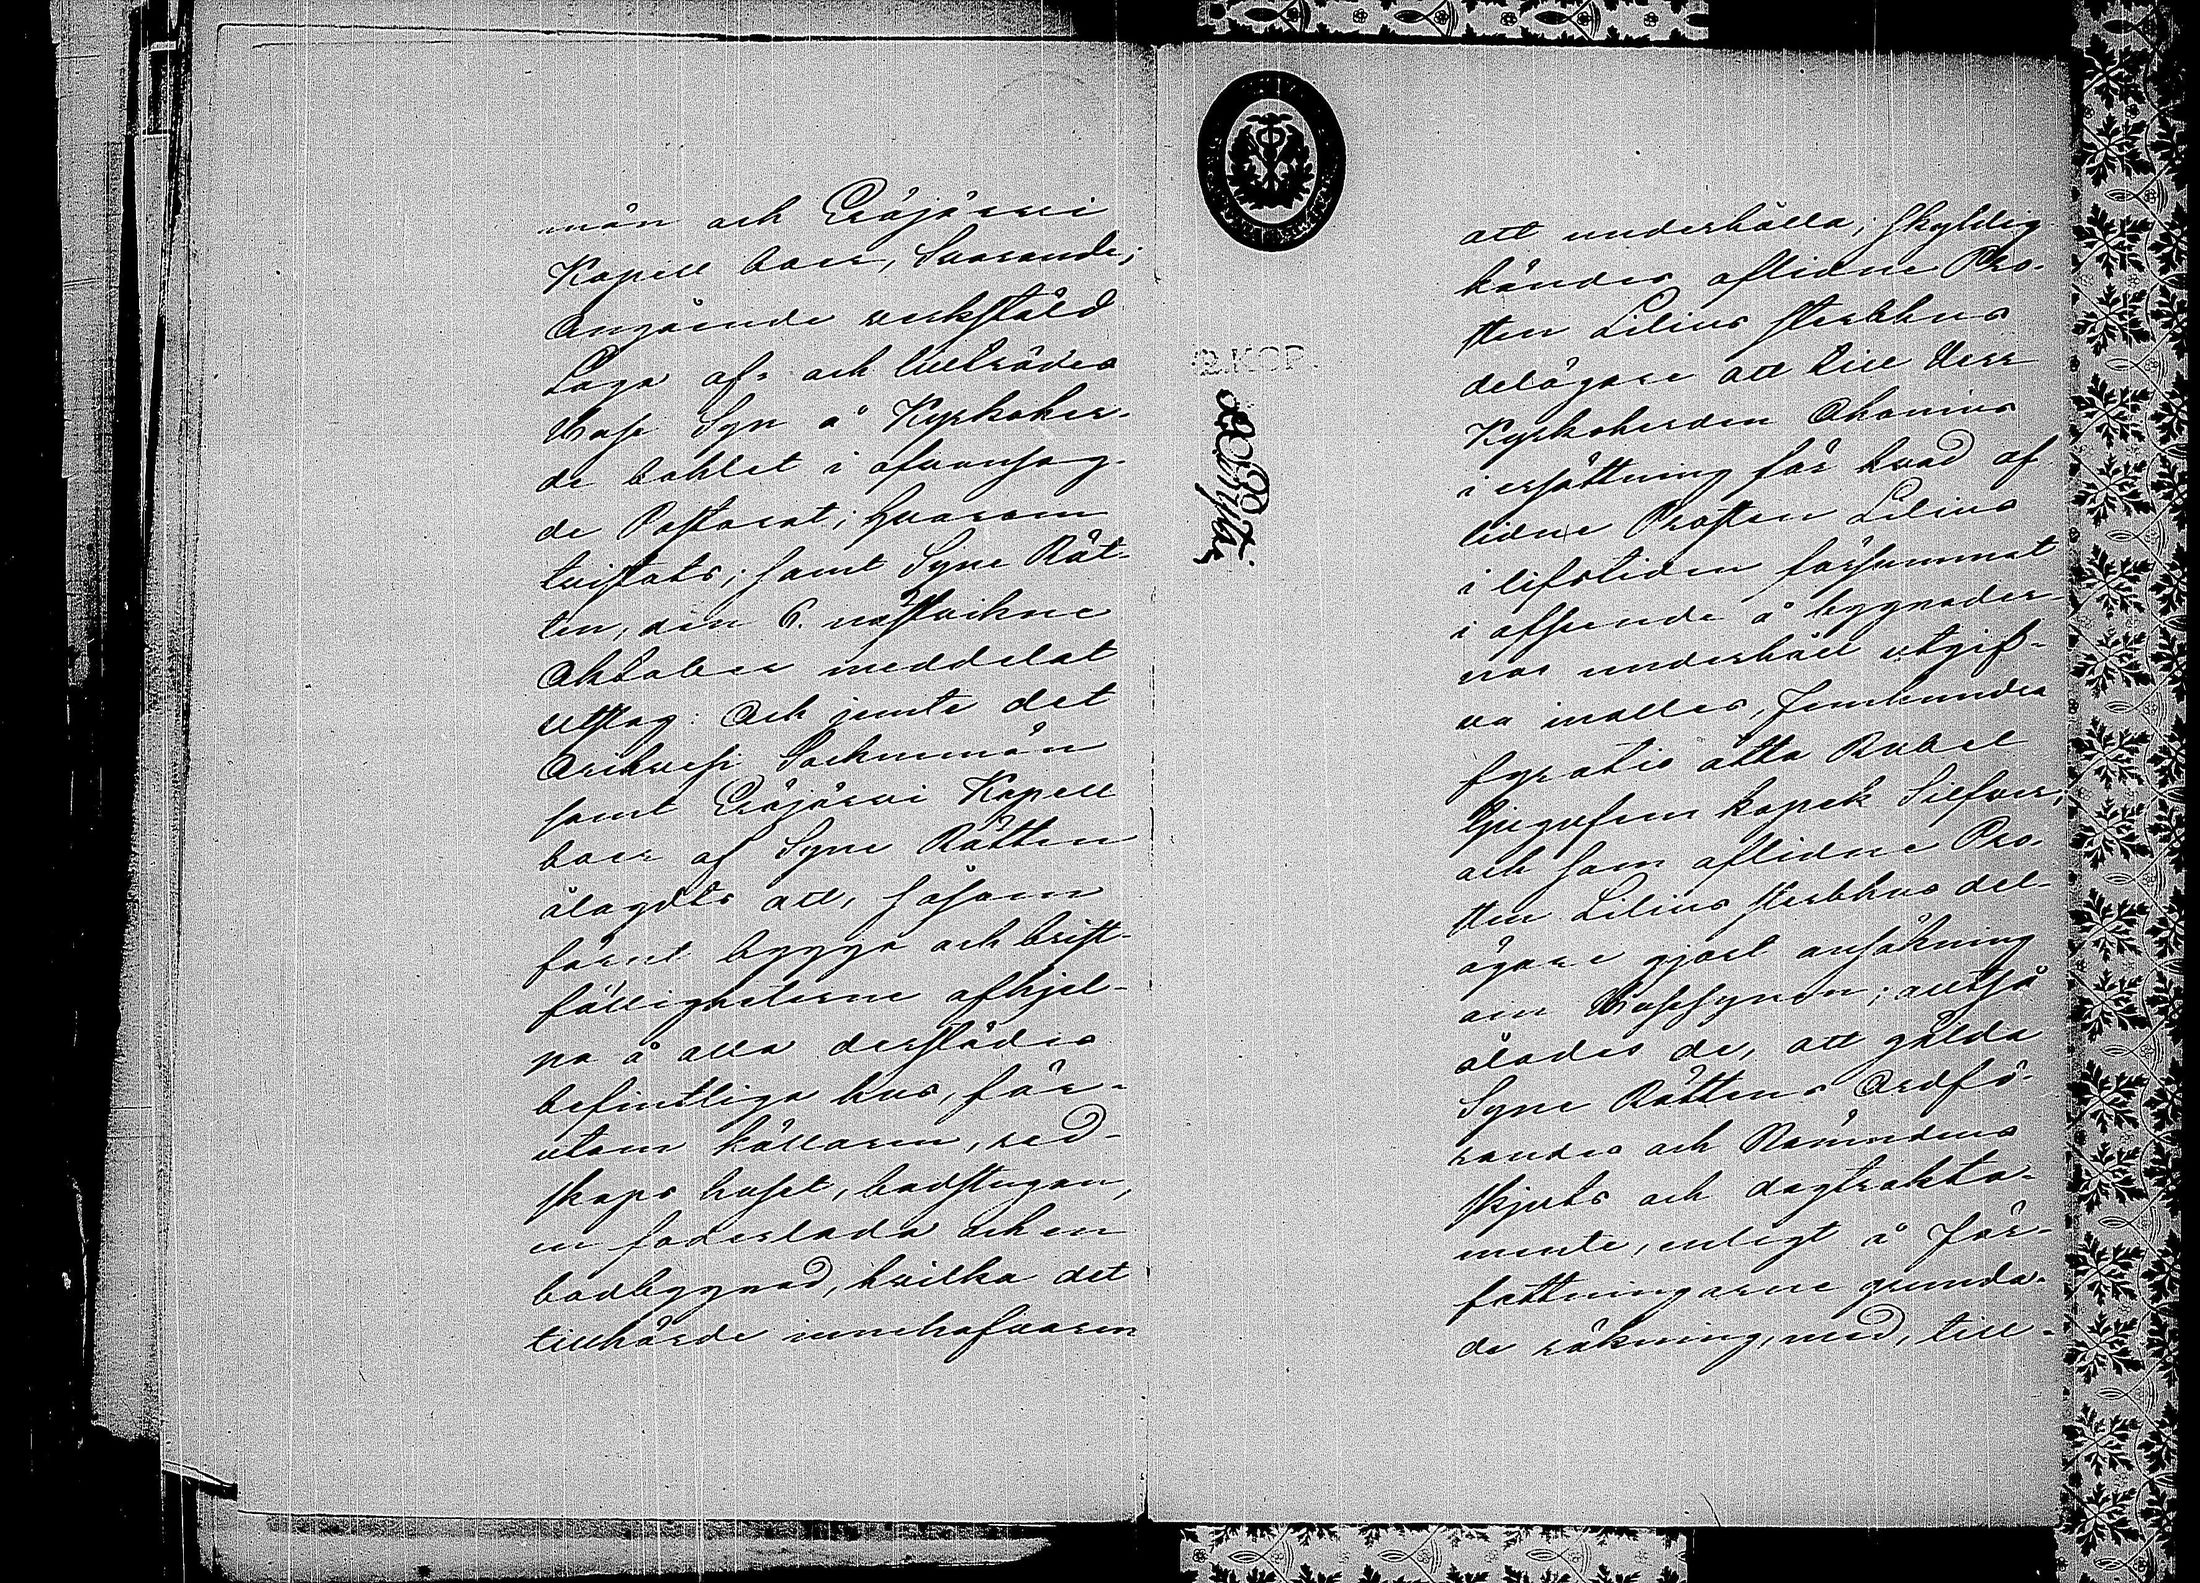 män och Eräjärvi
Kapell boer, Svarande;
Angående verkställd
Laga af- och tillträdes
Hus Syn å Kyrkoher-
de bohlet i ofvansag-
de Pastorat; hvarom
tvistats; samt Syne Rät-
ten, den 6. nästvikne
Oktober meddelat
utslag: Och jemte det
Orihvesi Sockenmän
samt Eräjärvi Kapell
boer af Syne Rätten
ålagdts att, såsom
förut bygga och brist-
fälligheterne afhjel-
pa å alla derstädes
befintliga hus, för-
utom källaren, red-
skaps huset, badstugan,
en foderlada och en
bodbyggnad, hvilka det
tillhörde innehafvaren
2. KOP.
att underhålla; skyldig
kändes aflidne Pro-
sten Lilius sterbhus
delägare att till Herr
Kyrkoherden Ahonius
i ersättning för hvad af
lidne Prosten Lilius
i lifstiden försummat
i afseende å byggnader-
nas underhåll utgif-
va inalles, femhundra
fyratio åtta Rubel
tjugufem kopek Silfver,
och som aflidne Pro-
sten Lilius sterbhus del-
ägare gjort ansökning
om Hussynen; alltså
ålades de, att gälda
Syne Rättens Ordfö-
randes och Nämndens
skjuts och dagtrakta-
mente, enligt å för-
fattningarne grunda-
de räkning, med, till-